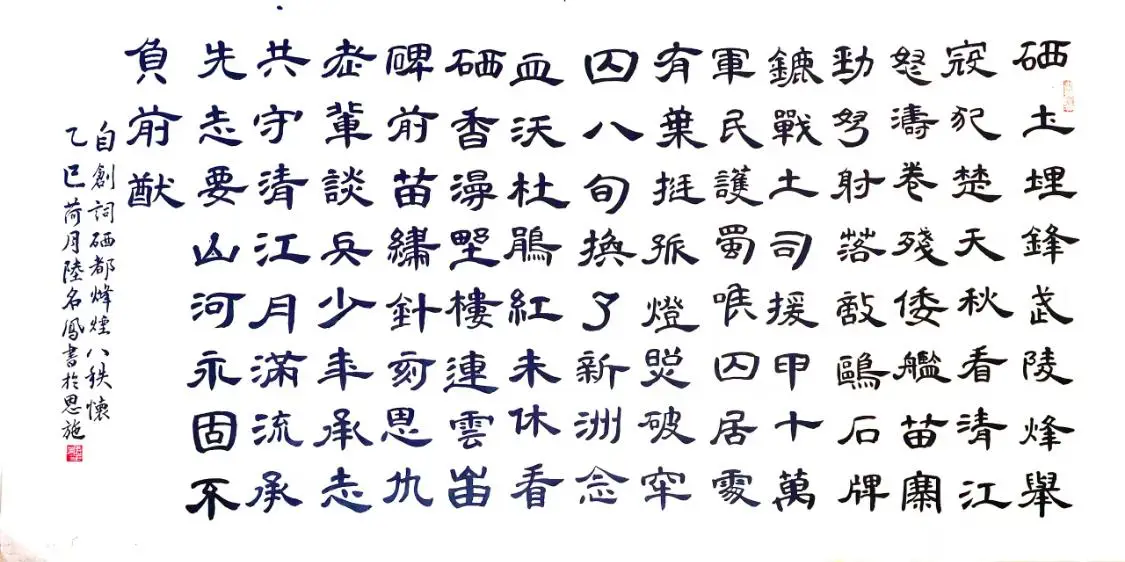 硒土埋鋒武陵烽舉
寇犯楚天秋看清江
怒濤卷殘倭艦苗寨
勁弩射落敵鷗石牌
鏕戰土司援甲十萬
軍民護蜀喉囚居處
有葉挺孤燈破牢
囚八旬換了新洲念
血沃杜鵑紅未休看
硒香漫野樓連雲峀
碑前苗繡針刻恩仇
老輩談兵少年承志
共守清江月滿流承
先志要山河永固不
負前猷
自創詞硒都烽煙八秩懷
乙巳荷月陸名鳳書於恩施